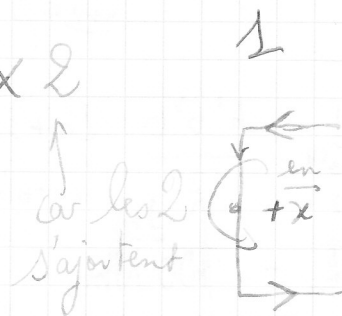 1
x 2
car les 2
s'ajoutent
en
+x